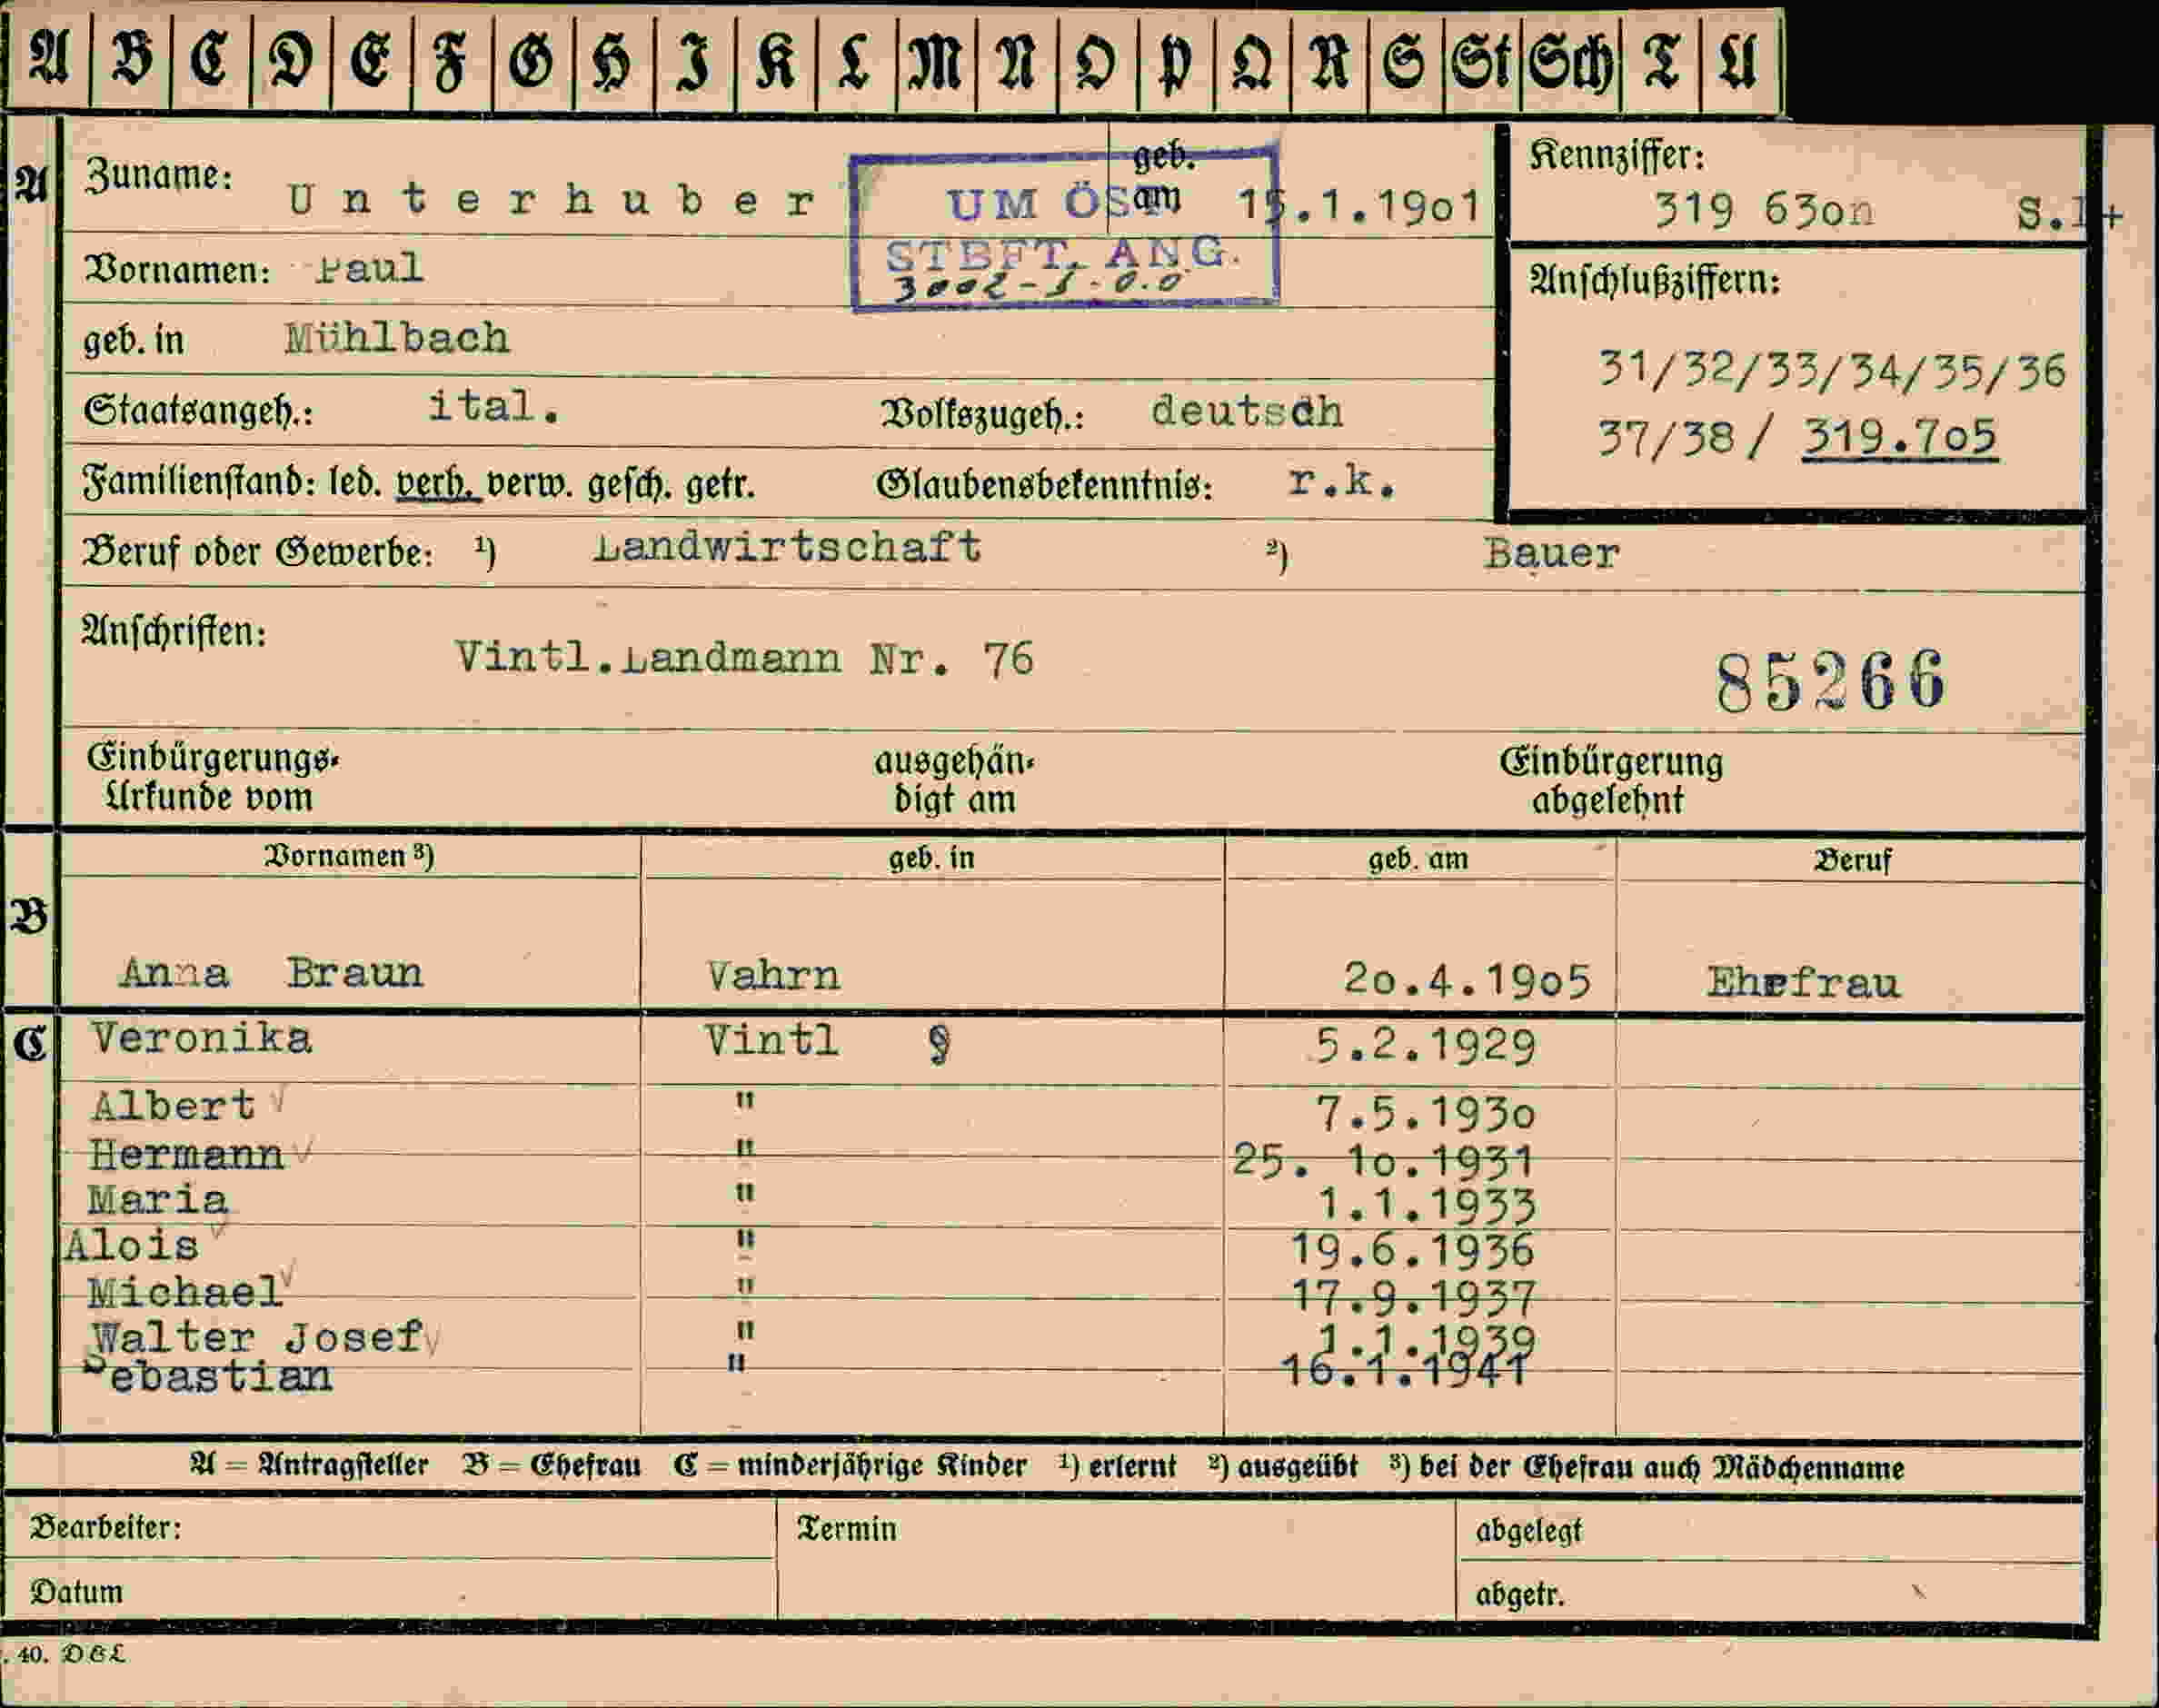 A B C D E F G H I K L M N O P Q R S St Sch T U
A Zuname: Unterhuber geb. am 15.1.1901 Kennziffer:
319 630n S.1+
UM ÖST.
STBFT. ANG.
3002-1-0.0
Vornamen: Paul Anschlußziffern:
geb. in Mühlbach
31/32/33/34/35/36
Staatsangeh.: ital. Volkszugeh.: deutsch
37/38/ 319.705
Familienstand: led. verh. verw. gesch. getr. Glaubensbekenntnis: r.k.
Beruf oder Gewerbe: 1) Landwirtschaft 2) Bauer
Anschriften: Vintl.Landmann Nr. 76 85266
Einbürgerungs- ausgehän- Einbürgerung
Urkunde vom digt am abgelehnt
Vornamen 3) geb. in geb. am Beruf
B
Anna Braun Vahrn 20.4.1905 Ehefrau
C Veronika Vintl § 5.2.1929
Albert " 7.5.1930
Hermann " 25. 10.1931
Maria " 1.1.1933
Alois " 19.6.1936
Michael " 17.9.1937
Walter Josef " 1.1.1939
Sebastian " 16.1.1941
A = Antragsteller B = Ehefrau C = minderjährige Kinder 1) erlernt 2) ausgeübt 3) bei der Ehefrau auch Mädchenname
Bearbeiter: Termin abgelegt
Datum abgetr.
. 40. DGL